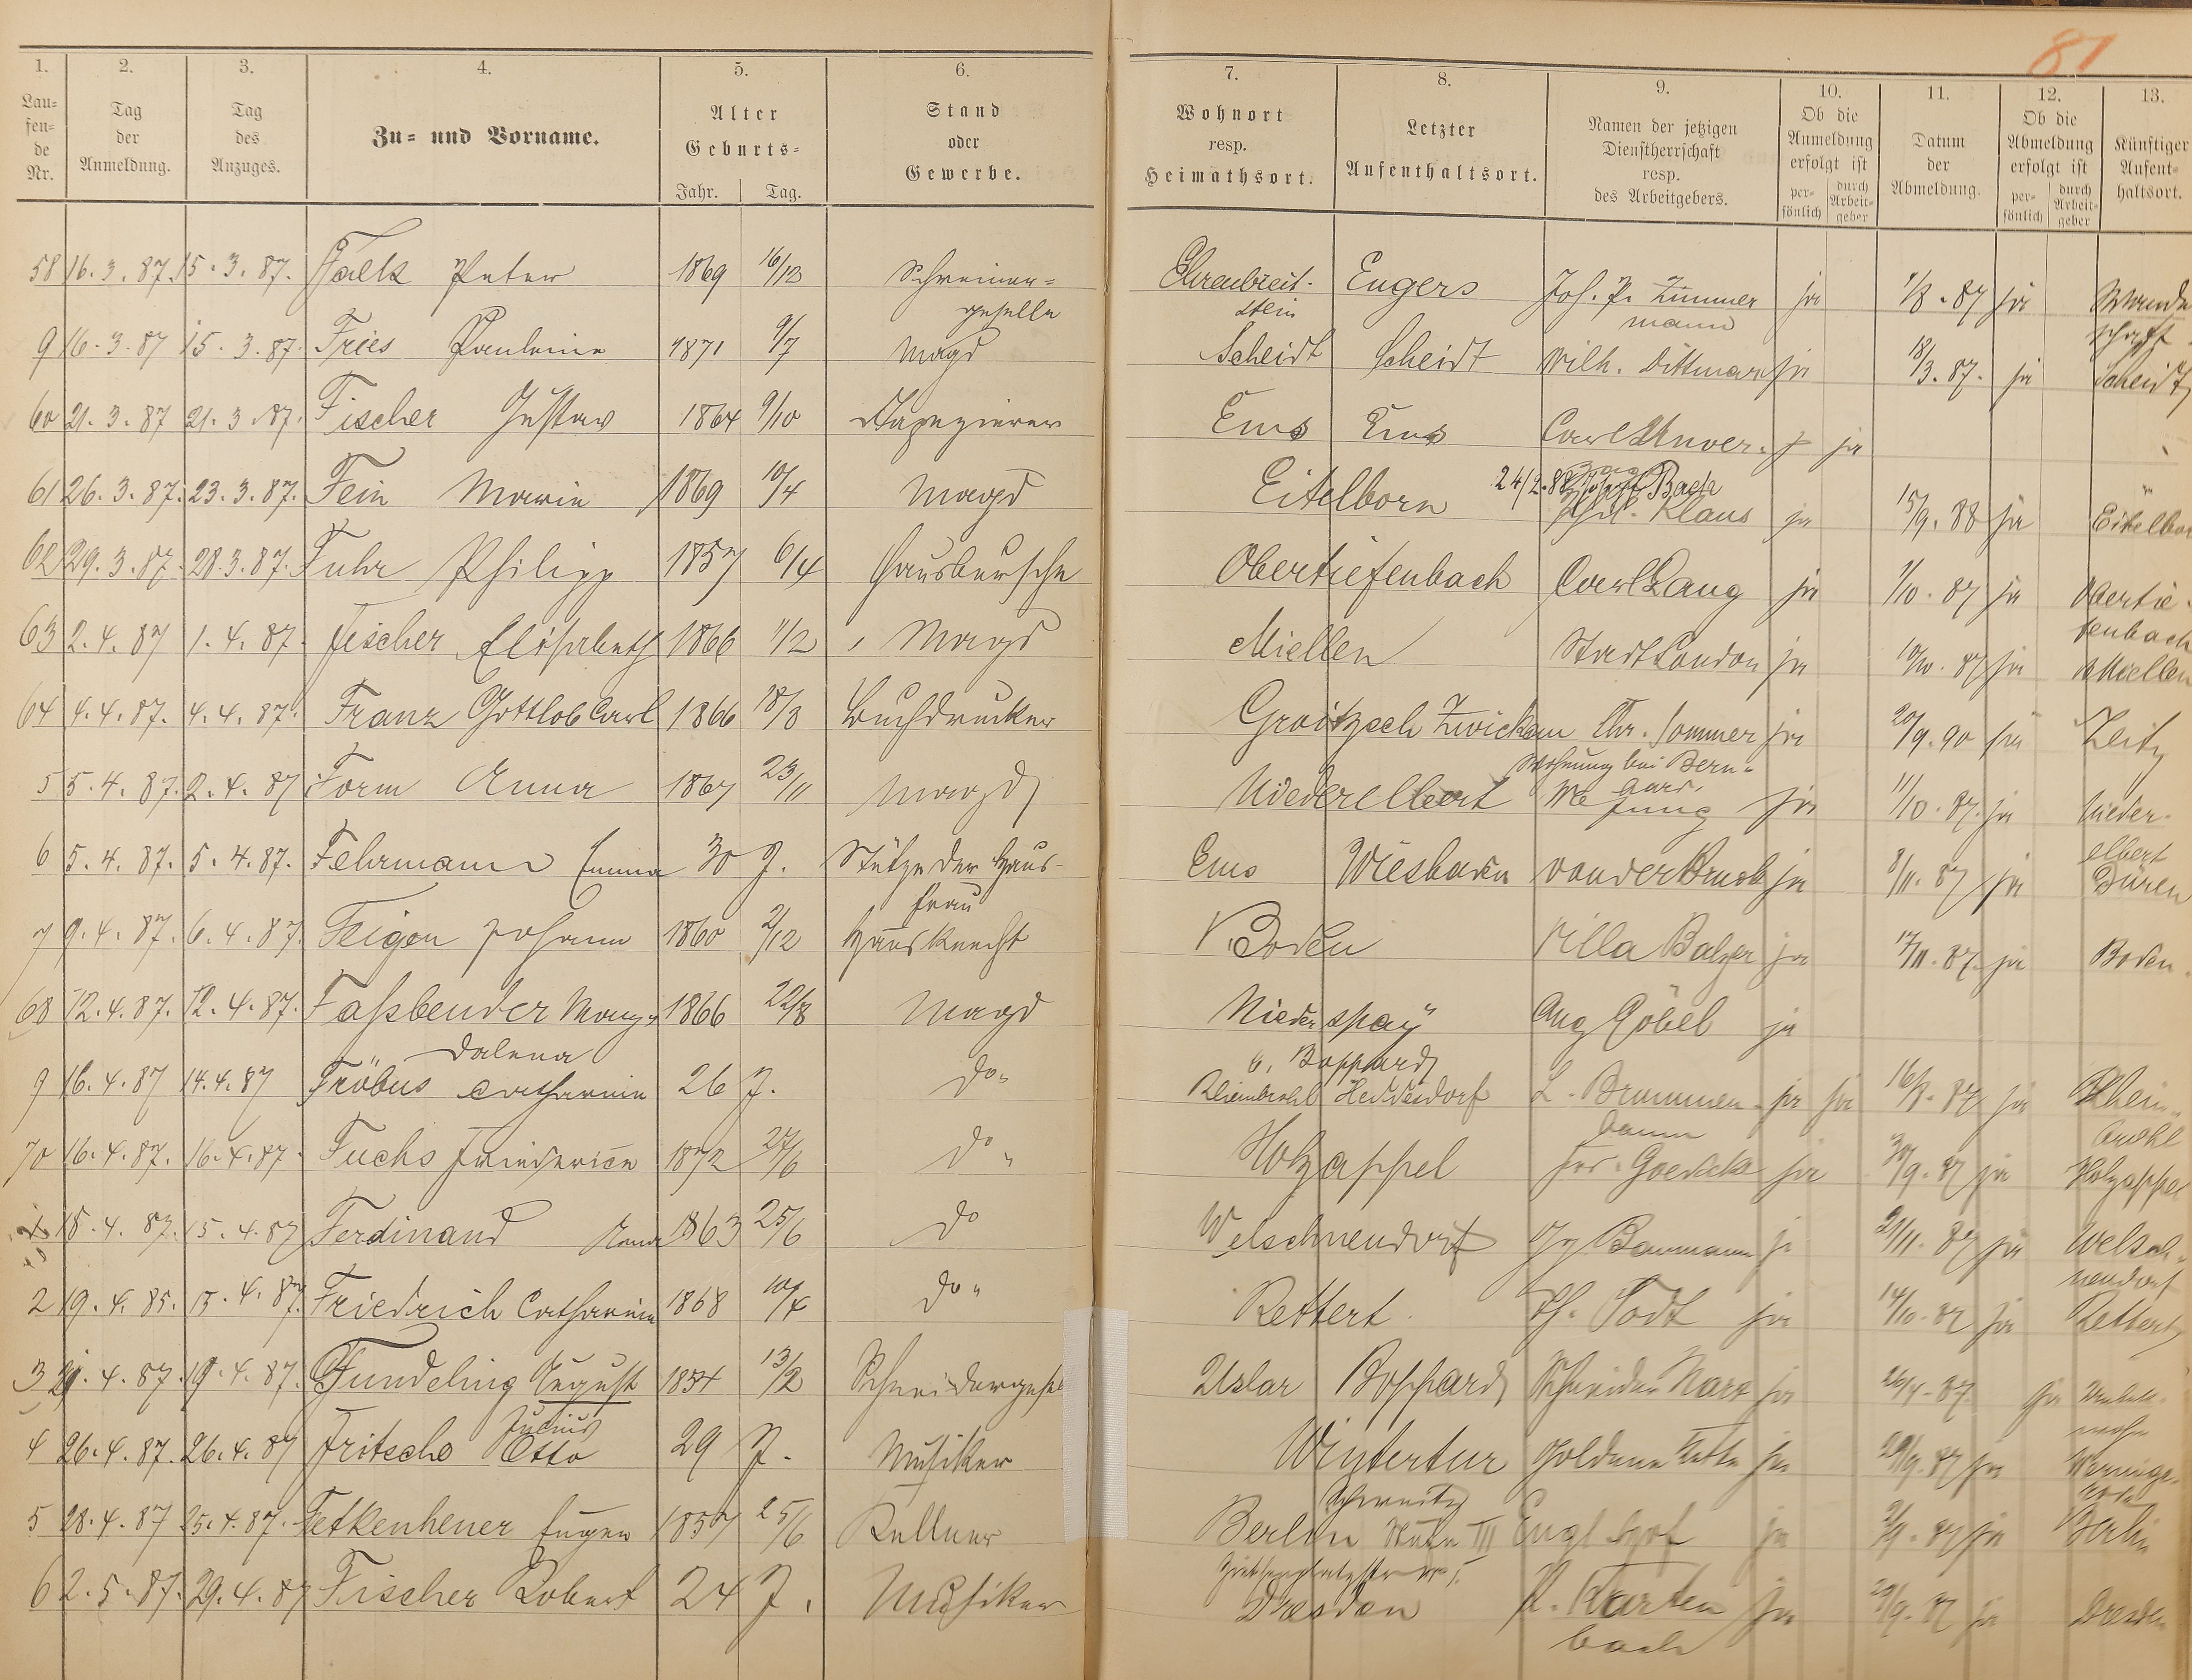 81
1. 2. 3. 4. 5. 6. 7. 8. 9. 10. 11. 12. 13.
Lau=
fen=
de
Nr.
Tag
der
Anmeldung.
Tag
des
Anzuges.
Zu= und Vorname.
Alter
Geburts=
Jahr. Tag.
Stand
oder
Gewerbe.
Wohnort
resp.
Heimathsort.
Letzter
Aufenthaltsort.
Namen der jetzigen
Dienstherrschaft
resp.
des Arbeitgebers.
Ob die
Anmeldung
erfolgt ist
per=
sönlich
durch
Arbeit=
geber
Datum
der
Abmeldung.
Ob die
Abmeldung
erfolgt ist
per=
sönlich
durch
Arbeit=
geber
Künftiger
Aufent=
haltsort.
58 16. 3. 87. 15. 3. 87. Falk Peter 1869 16/12 Schreiner= Ehrenbreit- Engers Joh. P. Zimmer ja 1/8. 87 ja
geselle stein mann
9 16. 3. 87 15. 3. 87. Fries Pauline 1871 9/7 Magd Scheidt Scheidt Wilh. Dittmar ja 18/3. 87. ja Scheidt
60 21. 3. 87 21. 3. 87. Fischer Gustav 1864 9/10 Tapezierer Ems Ems Carl ja
61 26. 3. 87. 23. 3. 87. Fein Marie 1869 10/4 Magd Eitelborn 24/2. 88 Bach
Klaus ja 15/9. 88 ja Eitelbor
62 29. 3. 87. 28. 3. 87. Fuhr Philipp 1857 6/4 Hausbursche Obertiefenbach Carl Lang ja 1/10. 87 ja Obertie-
fenbach
63 2. 4. 87 1. 4. 87. Fischer Elisabeth 1866 11/2 Magd Miellen Stadt London ja 10/10. 87 ja Miellen
64 4. 4. 87. 4. 4. 87. Franz Gottlob Carl 1866 18/3 Buchdrucker Groitzsch Zwickau Chr. Sommer ja 20/9. 90 ja Zeitz
Wohnung bei Bern-
hard
5 5. 4. 87. 2. 4. 87 Form Anna 1867 23/11 Magd Niederelbert Jung ja 11/10. 87. ja Nieder-
elbert
6 5. 4. 87. 5. 4. 87. Fehrmann Emma 30 J. Stütze der Haus- Ems Wiesbaden von der Bruck ja 8/11. 87 ja Düren
frau
7 9. 4. 87. 6. 4. 87. Feigen Johann 1860 2/12 Hausknecht Boden Villa Balzer ja 12/11. 87. ja Boden.
68 12. 4. 87. 12. 4. 87. Faßbender Mag- 1866 22/8 Magd Niederspay Aug Göbel ja
dalena b. Boppard
9 16. 4. 87 14. 4. 87 Fröbus Catharine 26 J. do. Rheinbrohl Heddesdorf L. Brummen- ja ja 16/8. 87 ja Rhein-
baum brohl
70 16. 4. 87. 16. 4. 87. Fuchs Friederice 1872 27/6 do. Holzappel Goedecke ja 30/9. 87 ja Holzappel
15. 4. 87. 15. 4. 87 Ferdinand Anna 1863 25/6 do Welschneudorf Baumann ja 21/11. 87 ja Welsch-
neudorf
2 19. 4. 85. 15. 4. 87. Friedrich Catharine 1868 10/4 do. Rettert. Todt ja 14/10. 87 ja Rettert
3 21. 4. 87. 19. 4. 87. Fundeling August 1854 13/2 Schneidergesel Uslar Boppard Schneider Marx ja 26/4. 87. ja
Julius
4 26. 4. 87. 26. 4. 87 Fritsche Otto 29 J. Musiker Wintertur Goldene Kette ja 29/9. 87 ja Wernige-
rode
Schweitz
5 28. 4. 87 25. 4. 87. Fetkenheuer Eugen 1857 25/6 Kellner Berlin III Engl Hof ja 2/9. 87 ja Berlin
6 2. 5. 87. 29. 4. 87 Fischer Robert 24 J. Musiker Dresden Karten ja 29/9. 87 ja Dresden
bach